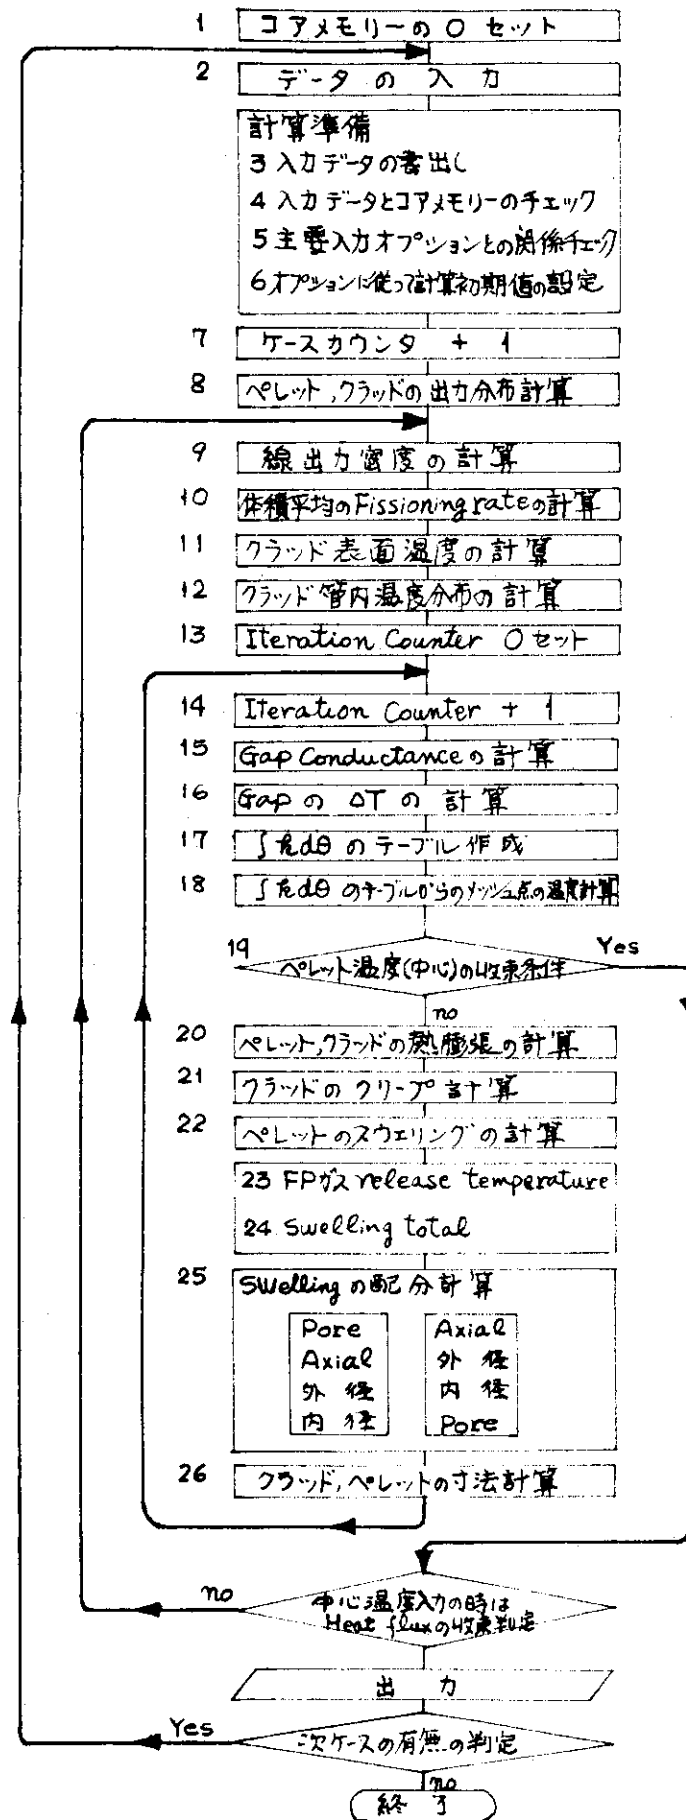 1 コアメモリーの 0 セット
2 データの入力
計算準備
3 入力データの書出し
4 入力データとコアメモリーのチェック
5 主要入力オプションとの関係チェック
6 オプションに従って計算初期値の設定
7 ケースカウンタ + 1
8 ペレット,クラッドの出力分布計算
9 線出力密度の計算
10 体積平均のFissioning rateの計算
11 クラッド表面温度の計算
12 クラッド管内温度分布の計算
13 Iteration Counter 0 セット
14 Iteration Counter + 1
15 Gap Conductanceの計算
16 Gap の ΔT の計算
17 ∫kdθ のテーブル作成
18 ∫kdθ のテーブルからのメッシュ点の温度計算
19 ペレット温度(中心)の収束条件 Yes
no
20 ペレット,クラッドの熱膨張の計算
21 クラッドのクリープ計算
22 ペレットのスウェリングの計算
23 FPガス release temperature
24 Swelling total
25 Swelling の配分計算
Pore Axial
Axial 外径
外径 内径
内径 Pore
26 クラッド,ペレットの寸法計算
no 中心温度入力の時は
Heat fluxの収束判定
出力
Yes 次ケースの有無の判定
no
終了